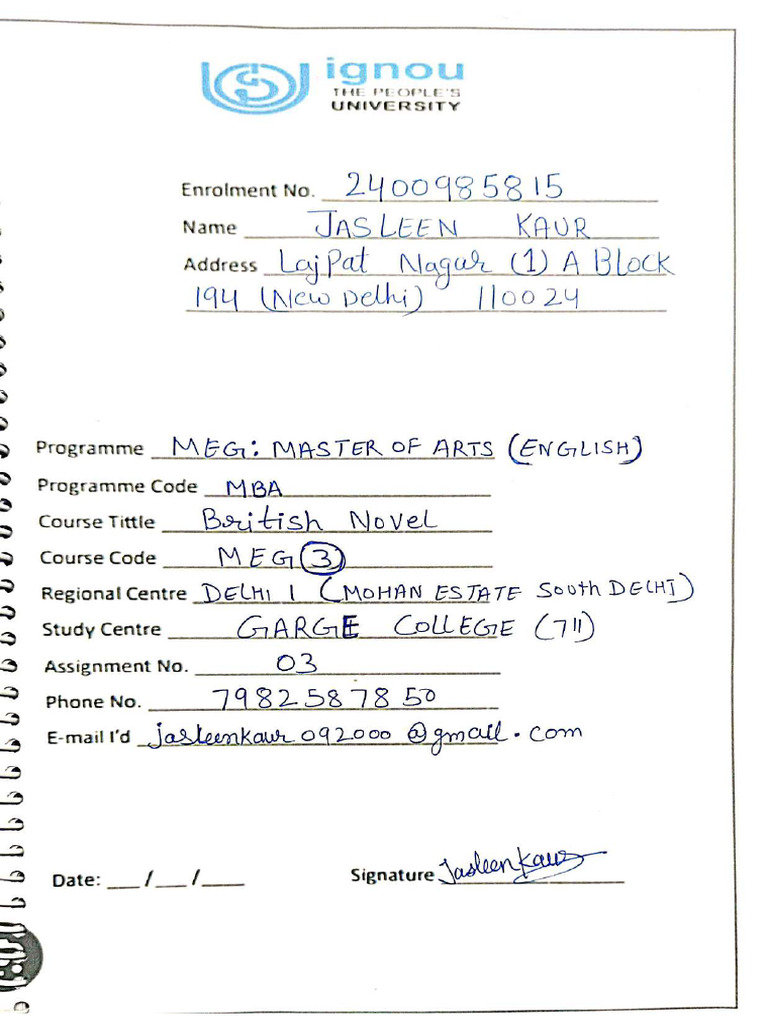 ignou
THE PEOPLE'S
UNIVERSITY
Enrolment No. 2400985815
Name JASLEEN KAUR
Address LajPat Nagar (1) A Block
194 (New Delhi) 110024
Programme MEG: MASTER OF ARTS (ENGLISH)
Programme Code MBA
Course Tittle British Novel
Course Code MEG 3
Regional Centre DELHI 1 (MOHAN ESTATE South DELHI)
Study Centre GARGE COLLEGE (711)
Assignment No. 03
Phone No. 7982587850
E-mail I'd jasleenkaur092000@gmail.com
Date: __/__/___ Signature Jasleen Kaur